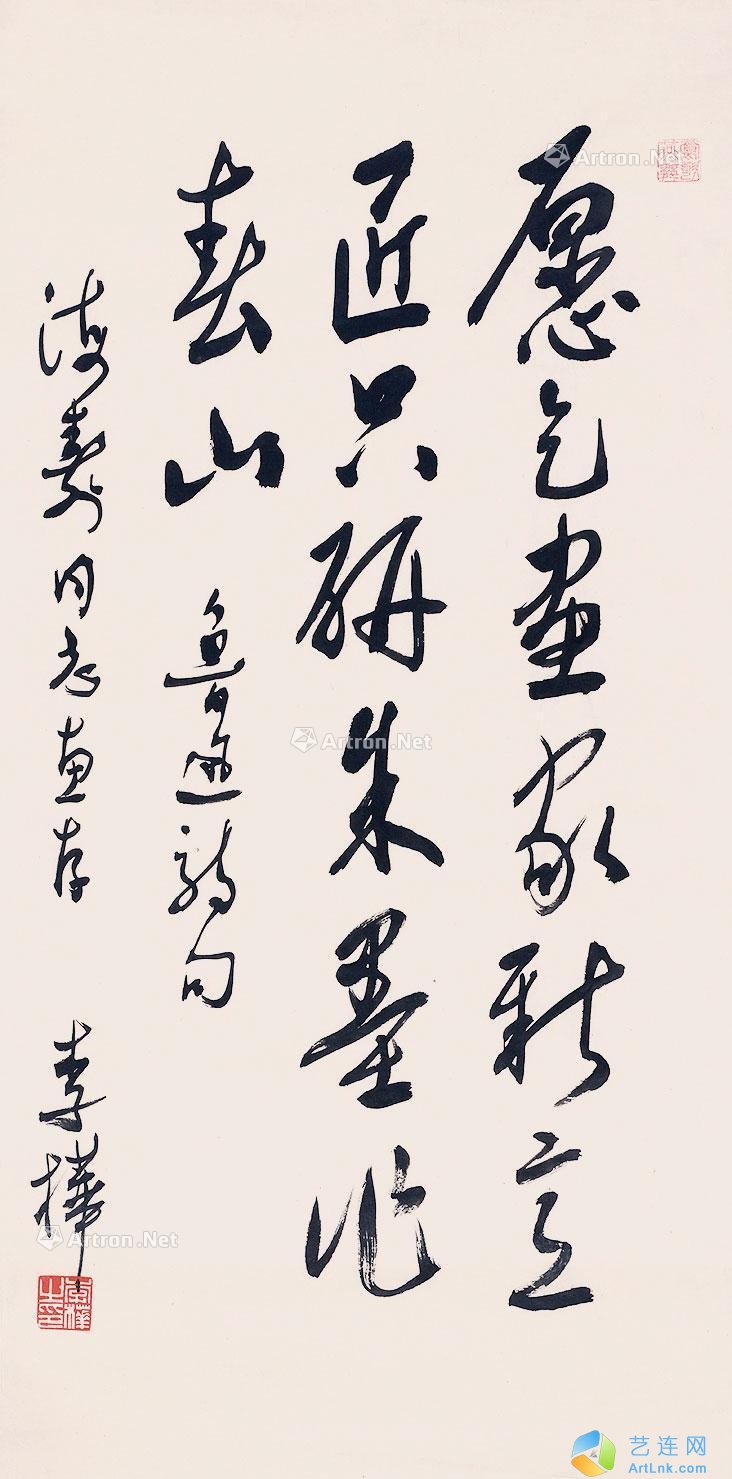 愿乞畫家新意
匠只研朱墨作
春山 魯迅詩句
海壽同志惠存 李樺
李樺之印
Artron.Net
Artron.Net
Artron.Net
艺连网
ArtLnk.com